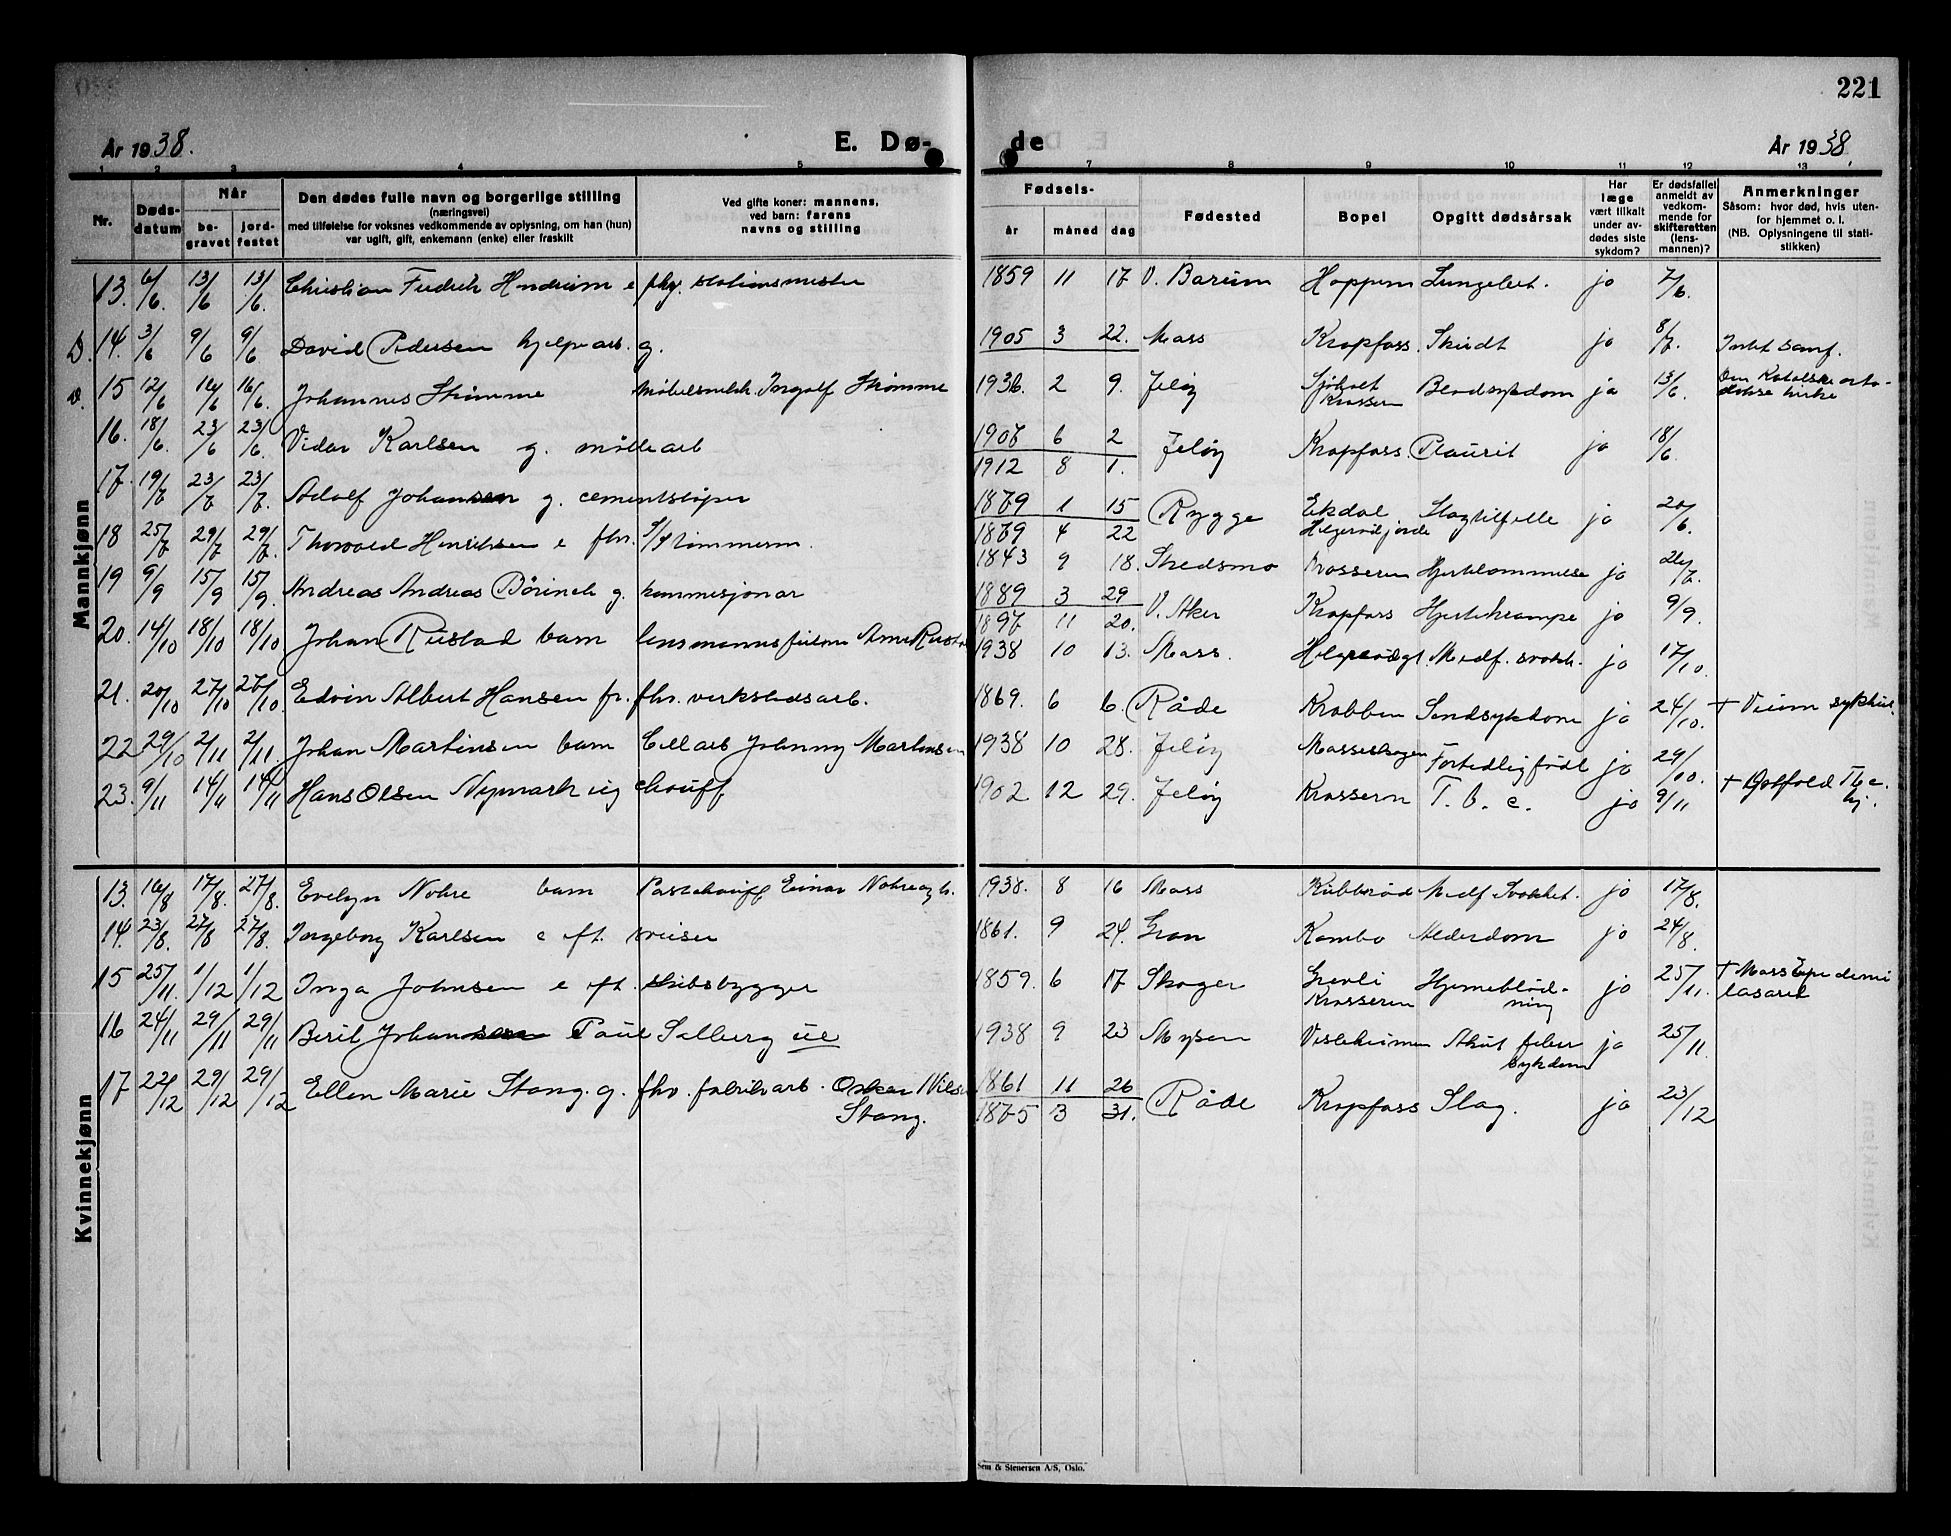 221
År 1938.
E. Dø-
de
År 1938
1 2 3 4 5 7 8 9 10 11 12 13
Nr.
Døds-
datum
Når
be-
gravet
jord-
festet
Den dødes fulle navn og borgerlige stilling
(næringsvei)
med tilføielse for voksnes vedkommende av oplysning, om han (hun)
var ugift, gift, enkemann (enke) eller fraskilt
Ved gifte koner: mannens,
ved barn: farens
navns og stilling
Fødsels-
år måned dag
Fødested
Bopel
Opgitt dødsårsak
Har
læge
vært tilkalt
under av-
dødes siste
sykdom?
Er dødsfallet
anmeldt av
vedkom-
mende for
skifteretten
(lens-
mannen)?
Anmerkninger
Såsom: hvor død, hvis uten-
for hjemmet o. l.
(NB. Oplysningene til stati-
stikken)
Mannkjønn
13. 6/6 13/6 13/6 Christian Fredrik e fhv. stationsmester 1859 11 17 V. Bærum Hoppern jo 7/6.
D. 14. 3/6 9/6 9/6 David Pedersen hjelpearb. g. 1905 3 22. Moss Kropfoss. Skudt jo
15 12/6 16/6 16/6. Johannes Skimme Ingolf Skimme 1936. 2 9. Jeløy Blodsykdom ja 13/6. Den Katolske orto-
dokse kirke
16. 18/6. 23/6 23/6. Vidar Karlsen g. møllearb 1907 6 2 Jeløy Kropfoss. Plaurit jo 18/6
1912 8 1.
17. 19/7 23/7 23/7. Adolf Johansen g. cementstøper 1879 1 15 Rygge Ekdal Slagtilfelle jo 20/6.
1879 4 22
18 25/7 29/7 29/7. Thorvald Henriksen e fhv. 1843 9 18. Skedsmo Krosseren Hjertelammelse jo
19 9/9 15/9 15/9. Andreas Andreas g. kommisjonær 1889 3 29 V. Aker Kropfoss Hjertekrampe jo 9/9.
1897 11 20.
20. 14/10 18/10 18/10 Johan Rustad barn 1938 10 13. Moss. jo 17/10.
21. 20/10 27/10 27/10. Edvin Albert Hansen fr. fhv. verkstedsarb. 1869. 6 6. Råde Krabben Sindsykdom jo 24/10. + Veum sykhus.
22 29/10 2/11 2/11. Johan Martinsen barn Cellarb Johnny Martinsen 1938 10 28. Jeløy Mosseskogen Fortidlig født jo 29/10.
23. 9/11 14/11 14/11 Hans Olsen Nymark ug chauff 1902 12 29. Jeløy Krosseren T. b. c. jo 9/11 + Østfold Tbc.
hj.
Kvinnekjønn
13. 16/8 17/8. 27/8. Evelyn Nohre barn Einar Nohre 1938. 8 16 Moss Kubberød Medf Svakhet. jo 17/8.
14. 23/8. 27/8 27/8. Ingeborg Karlsen e eft. 1861. 9 24. Gran Kambo Alderdom jo 24/8.
15 25/11. 1/12 1/12 Inga Johnsen e eft. skibsbygger 1859. 6 17 Skoger Grevli
Krosseren Hjerneblød-
ning jo 25/11. + Moss Epedemi
lasaret
16 24/11 29/11 29/11 Beril Johansen Paul Solberg ue 1938 9 23 Mysen Akut feber
sykdom jo 25/11.
17 22/12 29/12 29/12 Ellen Marie Stang. g. fhv. fabrikarb. Oskar Nilsen
Stang. 1861 11 26 Råde Kropfoss Slag. jo 23/12
1875 3 31.
Sem & Stenersen A/S, Oslo.